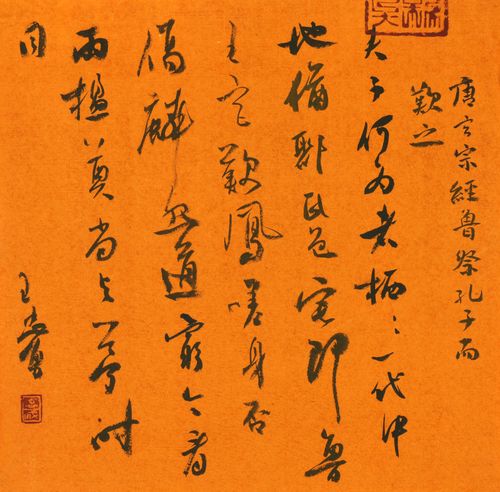 唐玄宗經魯祭孔子而
歎之
夫子何为者栖〻一代中
地猶鄹氏邑宅即魯
王宫歎鳳嗟身否
傷麟怨道窮今看
兩楹奠當与夢时
同
王